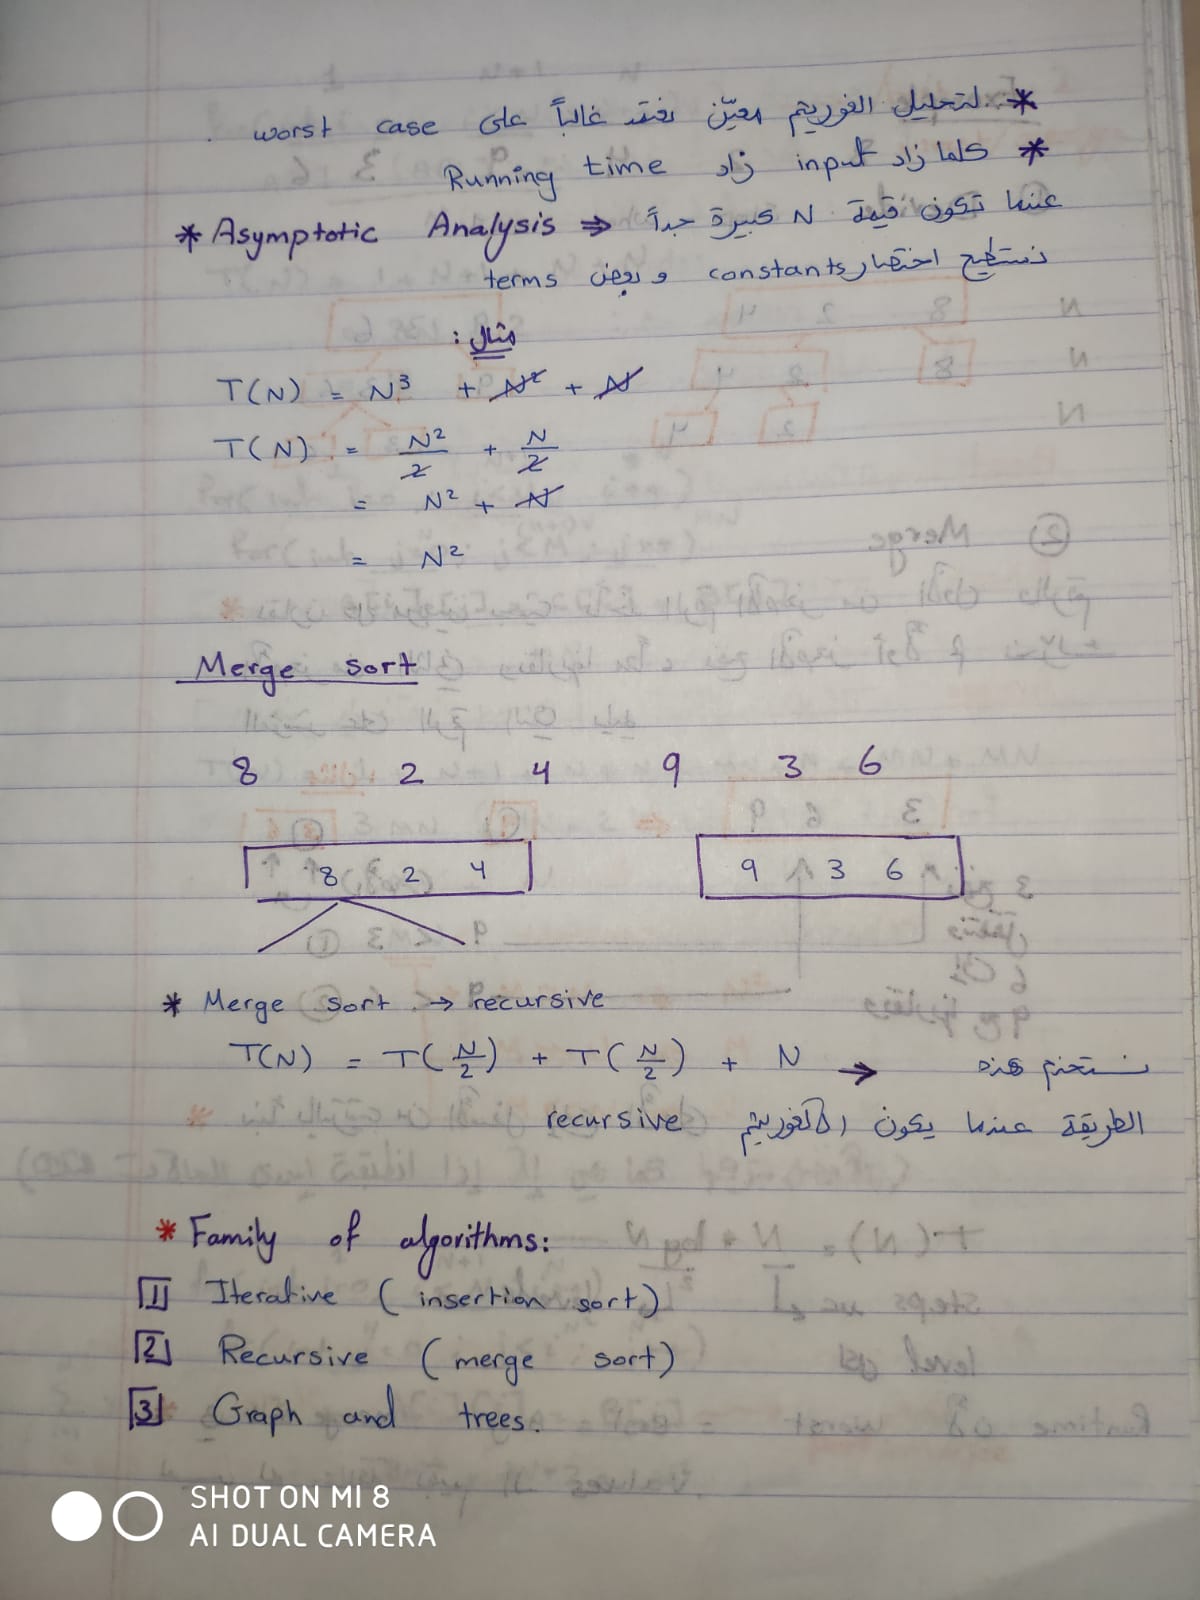 * لتحليل الغوريثم معيّن نعتمد غالباً على worst case .
* كلما زاد input زاد Running time
* Asymptotic Analysis ⇒ عندما تكون قيمة N كبيرة جداً
نستطيع اختصار constants و بعض terms
مثال :
T(N) = N³ + N² + N
T(N) = N²/2 + N/2
= N² + N
= N²
Merge sort
8 2 4 9 3 6
8 2 4 9 3 6
* Merge sort → recursive
T(N) = T(N/2) + T(N/2) + N → نستخدم هذه
الطريقة عندما يكون الالغوريثم recursive
* Family of algorithms:
1 Iterative ( insertion sort )
2 Recursive ( merge sort )
3 Graph and trees.
SHOT ON MI 8
AI DUAL CAMERA